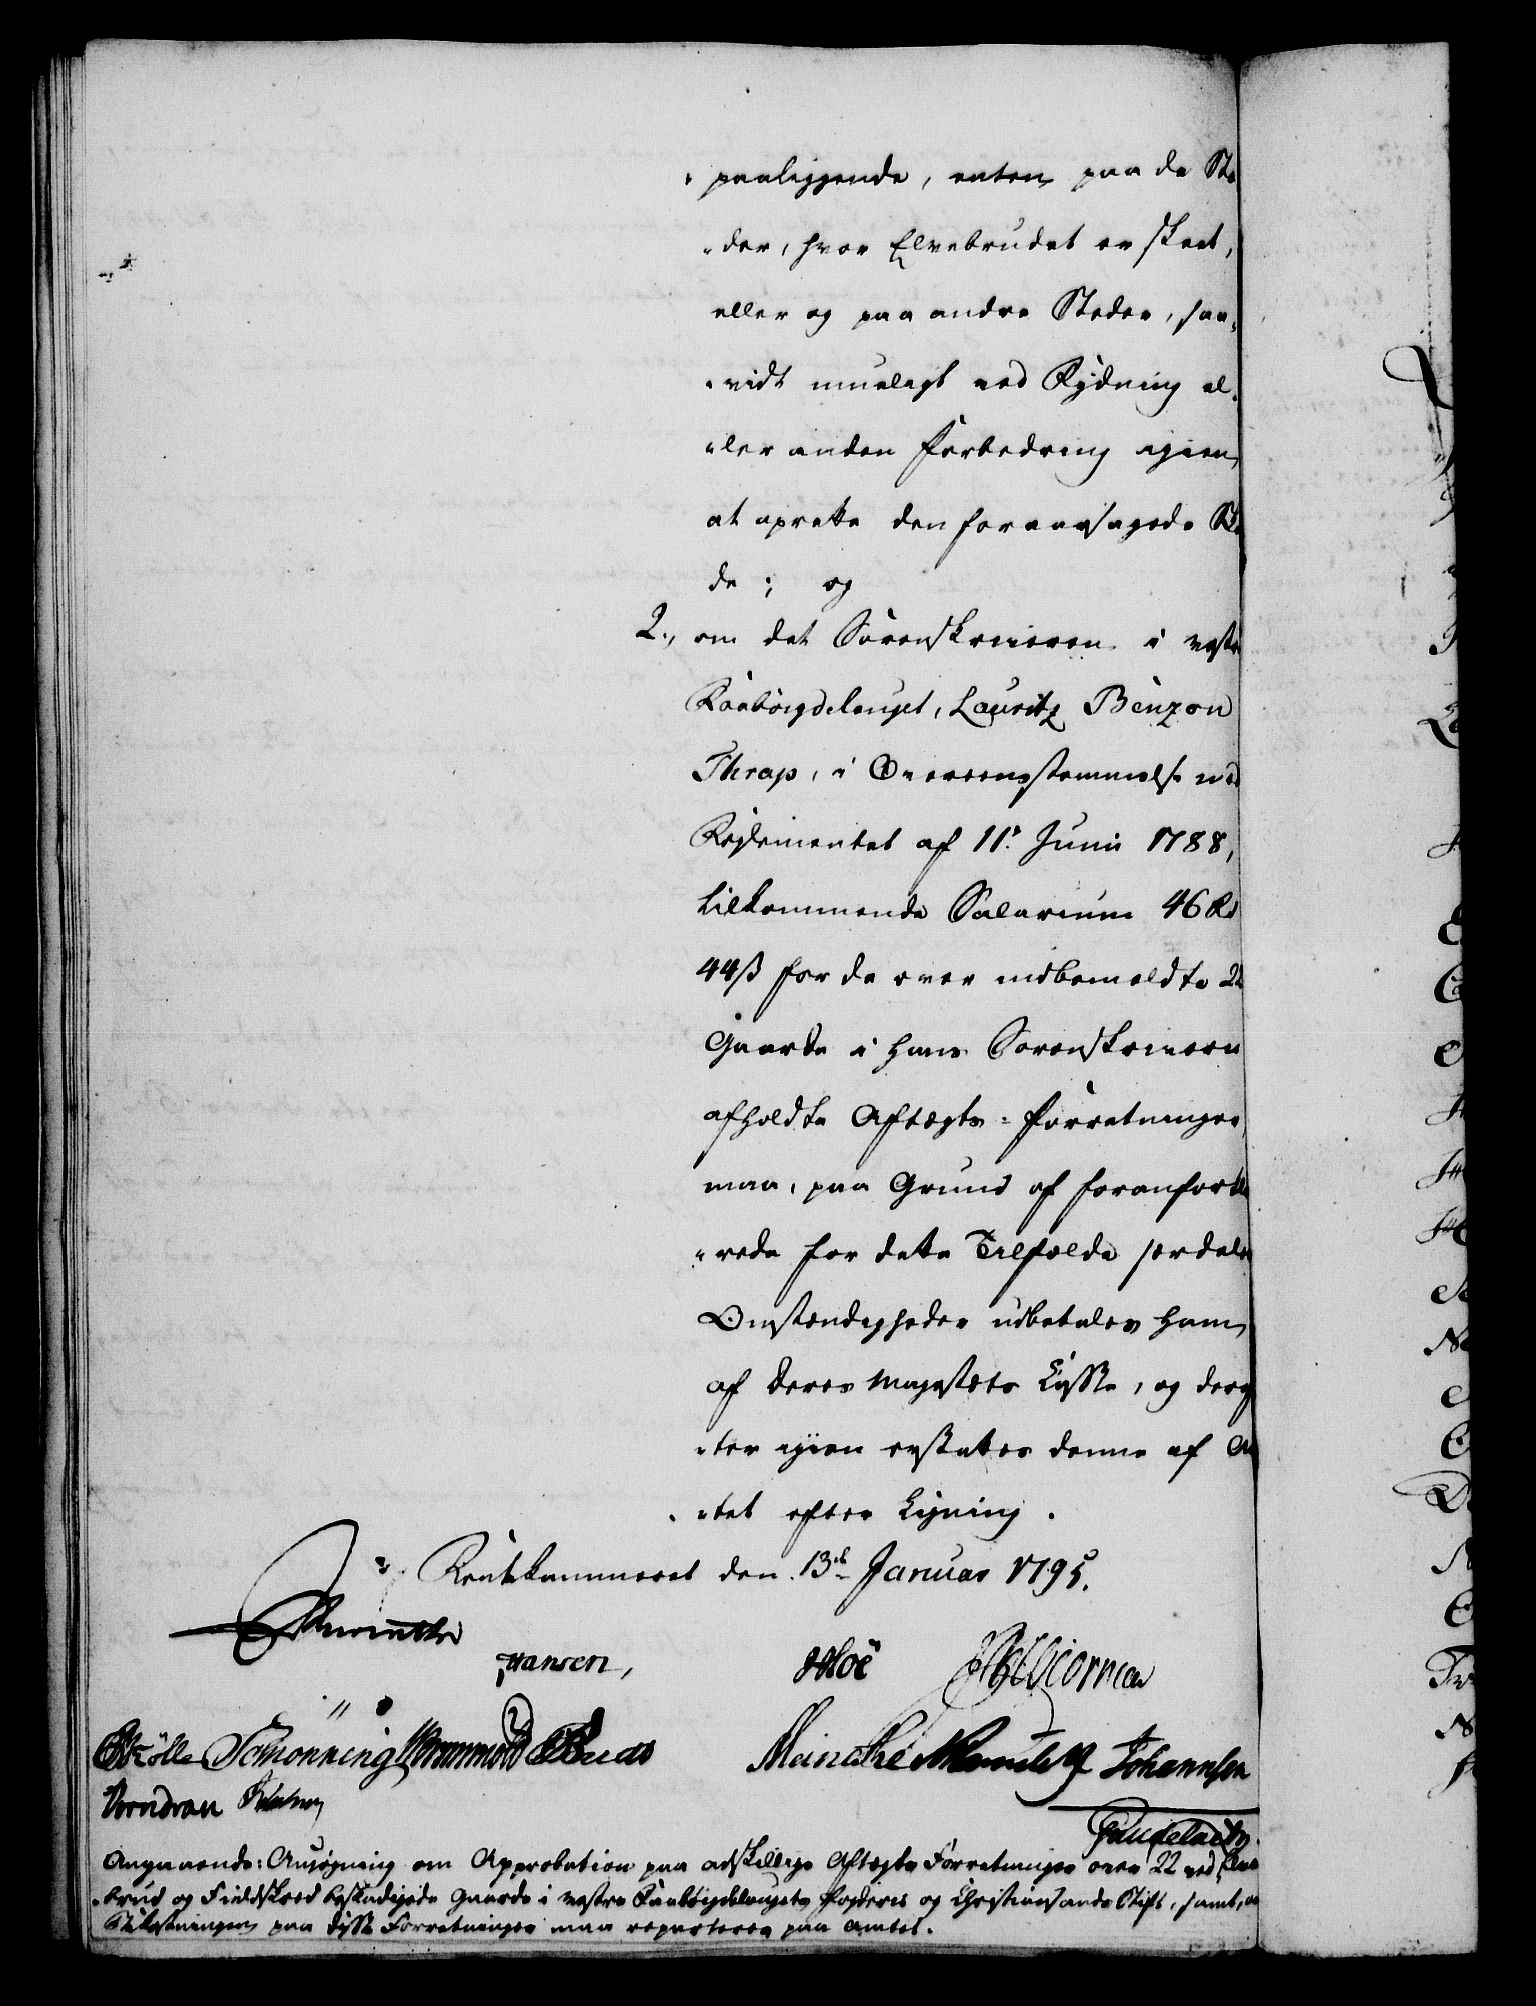 paaliggende, enten paa de Ste
„der, hvor Elvebrudet er skeet,
eller og paa andre Steder, saa„
„vidt mueligt ved Rydning el„
„ler anden Forbedring igien
at oprette den foraarsagede Ska
de; og
2., om det Sorenskriveren i vestre
Raabÿgdelauget, Lauritz Benzon
Thrap, i Overeensstemmelse med
Reglementet af 11te Junii 1788,
tilkommende Salarium 46 Rd
44 ß for de over indbemeldte 22
Gaarde i hans Sorenskriverie
afholdte Aftægts-Forretninger
maa, paa Grund af foranførte
„rede for dette Tilfælde særdeles
Omstændigheder udbetales ham
af Deres Majestæts Casse, og deref
„ter igien erstattes denne af Am
„tet efter Ligning.
Rentekammeret den 13de Januar 1795.
Hansen, Hoë Wormer
Schönning Meincke Johannsen
Angaaende: Ansøgning om Approbation paa adskillige Aftægts Forretninger over 22 ved Elve
„brud og Fieldskred beskadigede Gaarde i vestre Raabÿgdelaugets Fogderie og Christiansands Stift, samt, at
Bekostningen paa disse Forretninger maa reparteres paa Amtet.